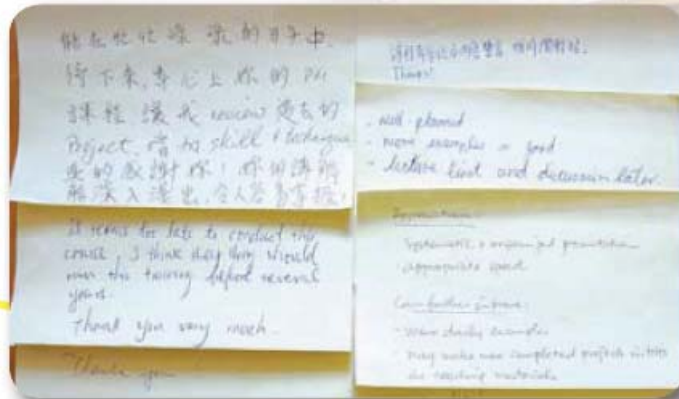 能在忙忙碌碌的日子中,
停下來,專心上你的 PM
課程 讓我 review 過去的
Project, 增加 skill + technique
衷的感謝你! 你的講解
深入淺出, 令人容易掌握!
It seems too late to conduct this
course, I think they should
run this training before several
years.
Thank you very much.
Thank you
Thanks!
- well-planned
- more examples is good
- lecture first and discussion later.
Appreciation:
Systematic & organized presentation
appropriate speed
Can further improve:
- More daily examples
- May make use completed projects
as teaching materials